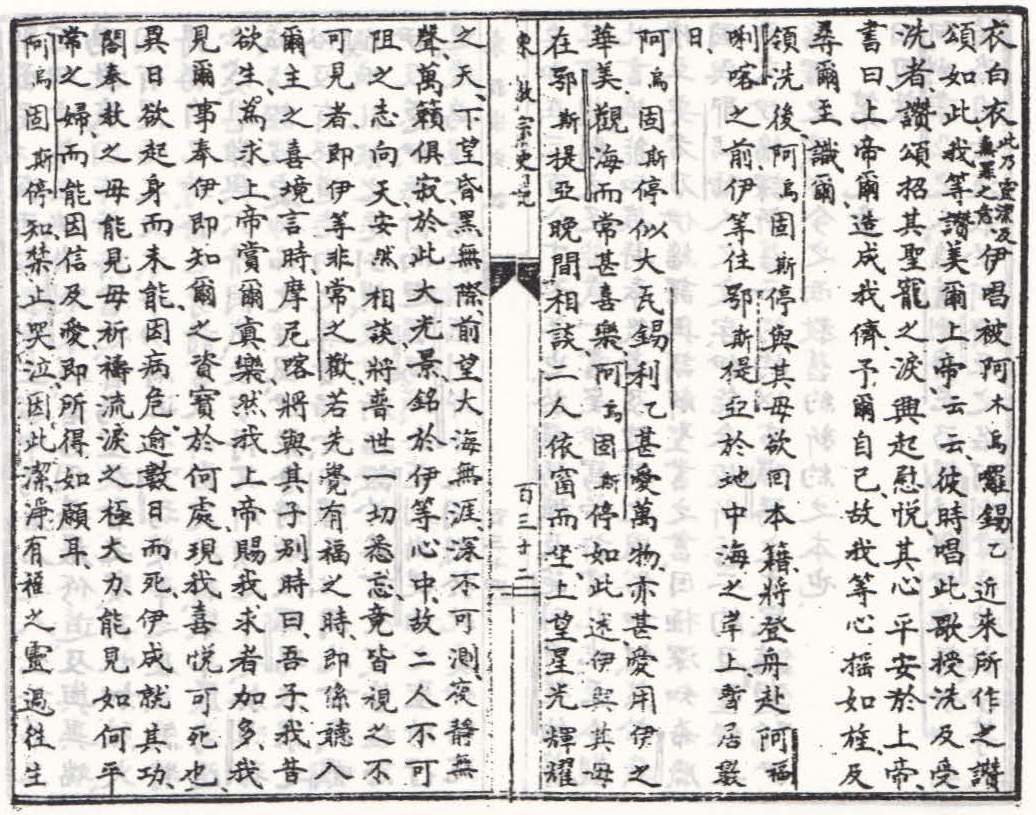 衣白衣此乃靈潔及無罪之意伊唱被阿木烏羅錫乙近來所作之讚
頌如此我等讚美爾上帝云云彼時唱此歌授洗及受
洗者讚頌招其聖寵之淚興起慰悅其心平安於上帝
書曰上帝爾造成我儕予爾自己故我等心搖如旌及
尋爾至識爾
領洗後阿烏固斯停與其母欲回本籍將登舟赴阿福
唎喀之前伊等住鄂斯提亞於地中海之岸上暫居數
日
阿烏固斯停似大瓦錫利乙甚愛萬物亦甚愛用伊之
華美觀海而常甚喜樂阿烏固斯停如此述伊與其母
在鄂斯提亞晚間相談二人依窗而坐上望星光輝耀
東教宗史記
百三十二
之天下望昏黑無際前望大海無涯深不可測夜靜無
聲萬籟俱寂於此大光景銘於伊等心中故二人不可
阻之志向天安然相談將普世一切悉忘竟皆視之不
可見者即伊等非常之歡若先覺有福之時即係聽入
爾主之喜境言時摩尼喀將與其子別時曰吾子我昔
欲生為求上帝賞爾真樂然我上帝賜我求者加多我
見爾事奉伊即知爾之資寶於何處現我喜悅可死也
異日欲起身而未能因病危逾數日而死伊成就其功
閤奉教之母能見母祈禱流淚之極大力能見如何平
常之婦而能因信及愛即所得如願耳
阿烏固斯停知禁止哭泣因此潔淨有福之靈過往生